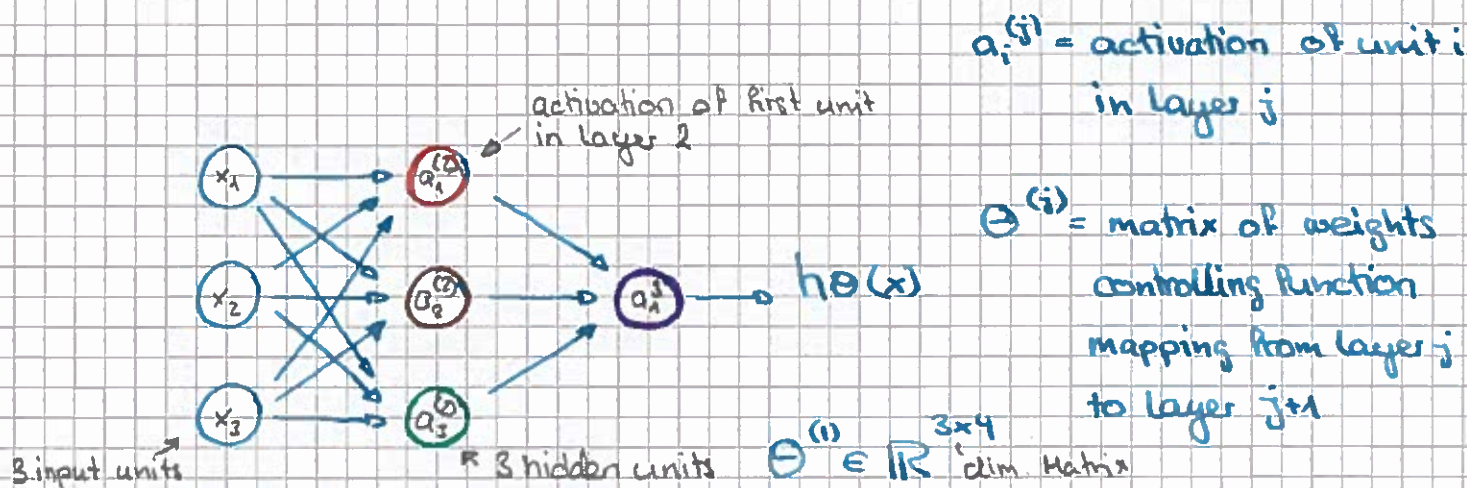 aᵢ⁽ʲ⁾ = activation of unit i
in layer j
activation of first unit
in layer 2
x₁
a₁⁽²⁾
Θ⁽ʲ⁾ = matrix of weights
controlling function
mapping from layer j
to layer j+1
x₂
a₂⁽²⁾
a₁³
hΘ(x)
x₃
a₃⁽²⁾
3 input units
3 hidden units
Θ⁽¹⁾ ∈ ℝ³ˣ⁴ dim. Matrix